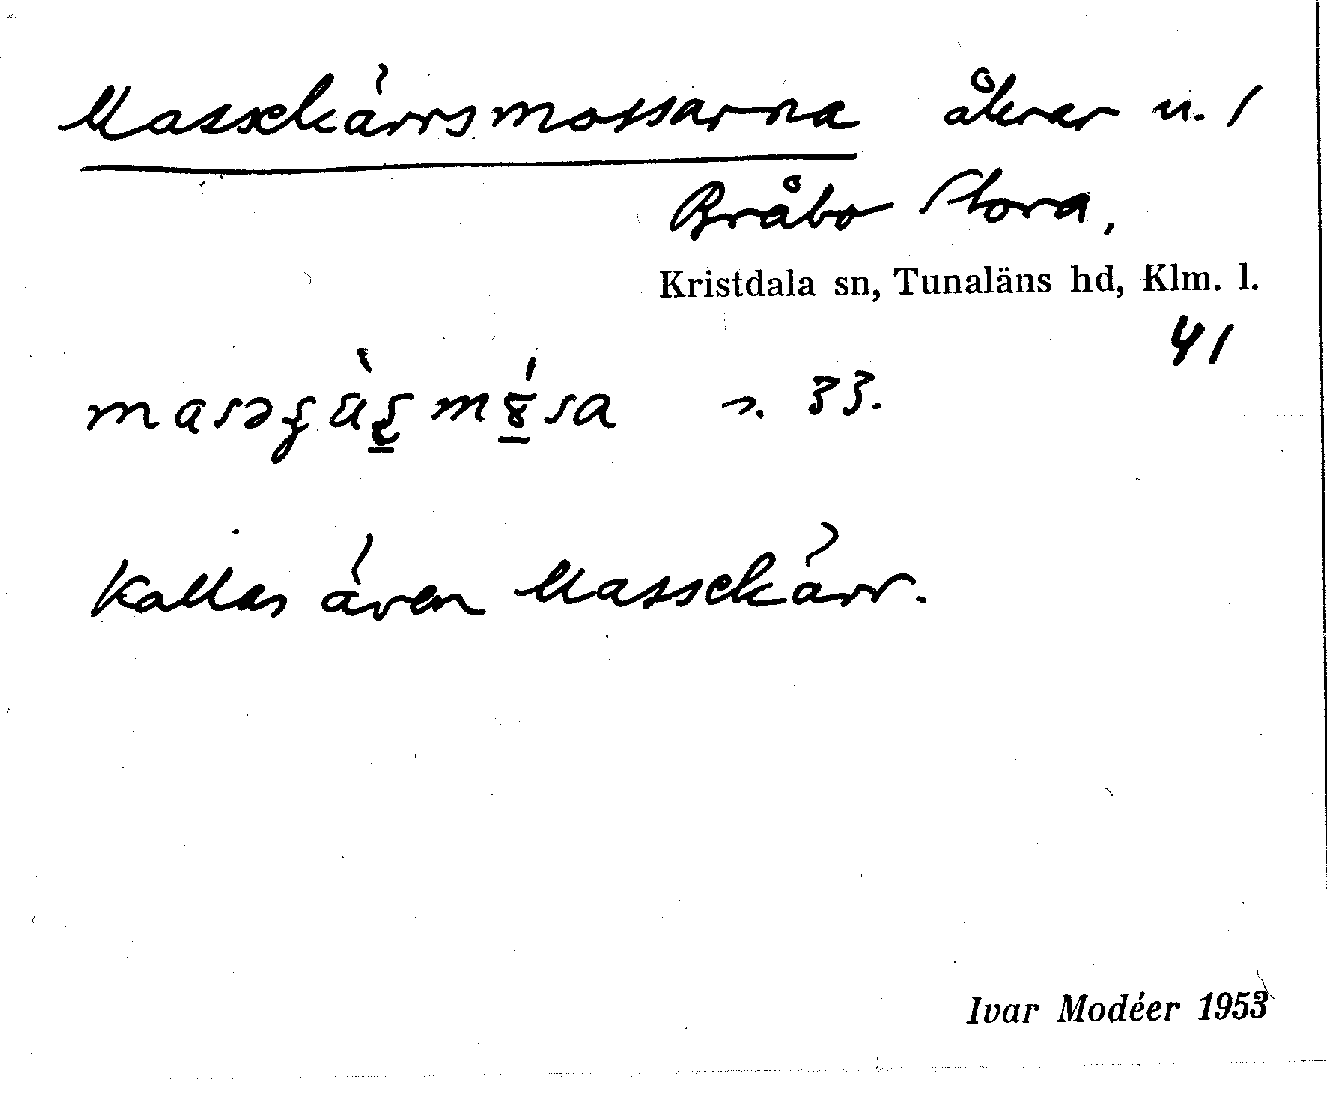 Massekärrsmossarna åkrar u. 1
Bråbo Stora,
Kristdala sn, Tunaläns hd, Klm. l.
41
33.
Kallas även Massekärr.
Ivar Modéer 1953